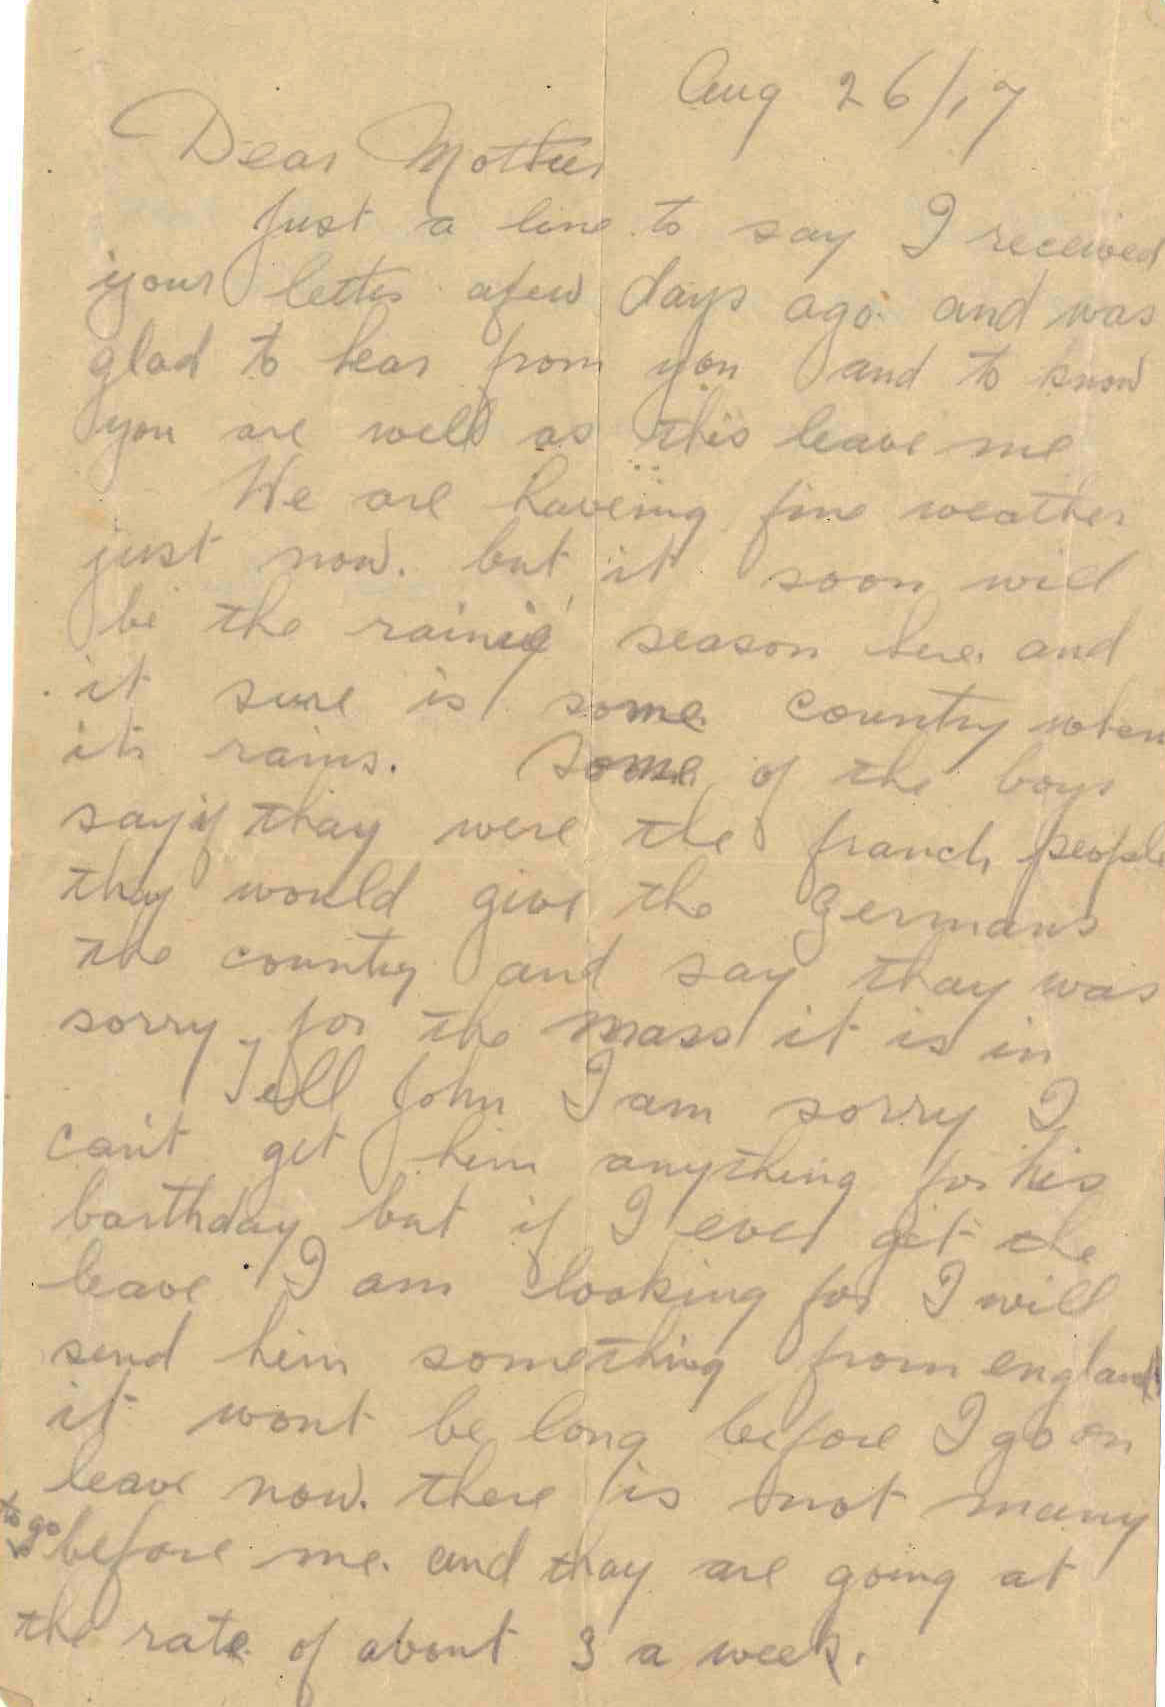 Aug 26/17
Dear Mother
Just a line to say I received
your letter afew days ago and was
glad to hear from you and to know
you are well as this leave me
We are haveing fine weather
just now. but it soon will
be the rainie season here and
it sure is some country when
its rains. Some of the boys
say if thay were the franch people
thay would give the Germans
the country and say thay was
sorry for the mass it is in
Tell John I am sorry I
can't get him anything for his
barthday but if I ever get the
leave I am looking for I will
send him something from england
it wont be long before I go on
leave now. there is not many
to go before me. and thay are going at
the rate of about 3 a week.